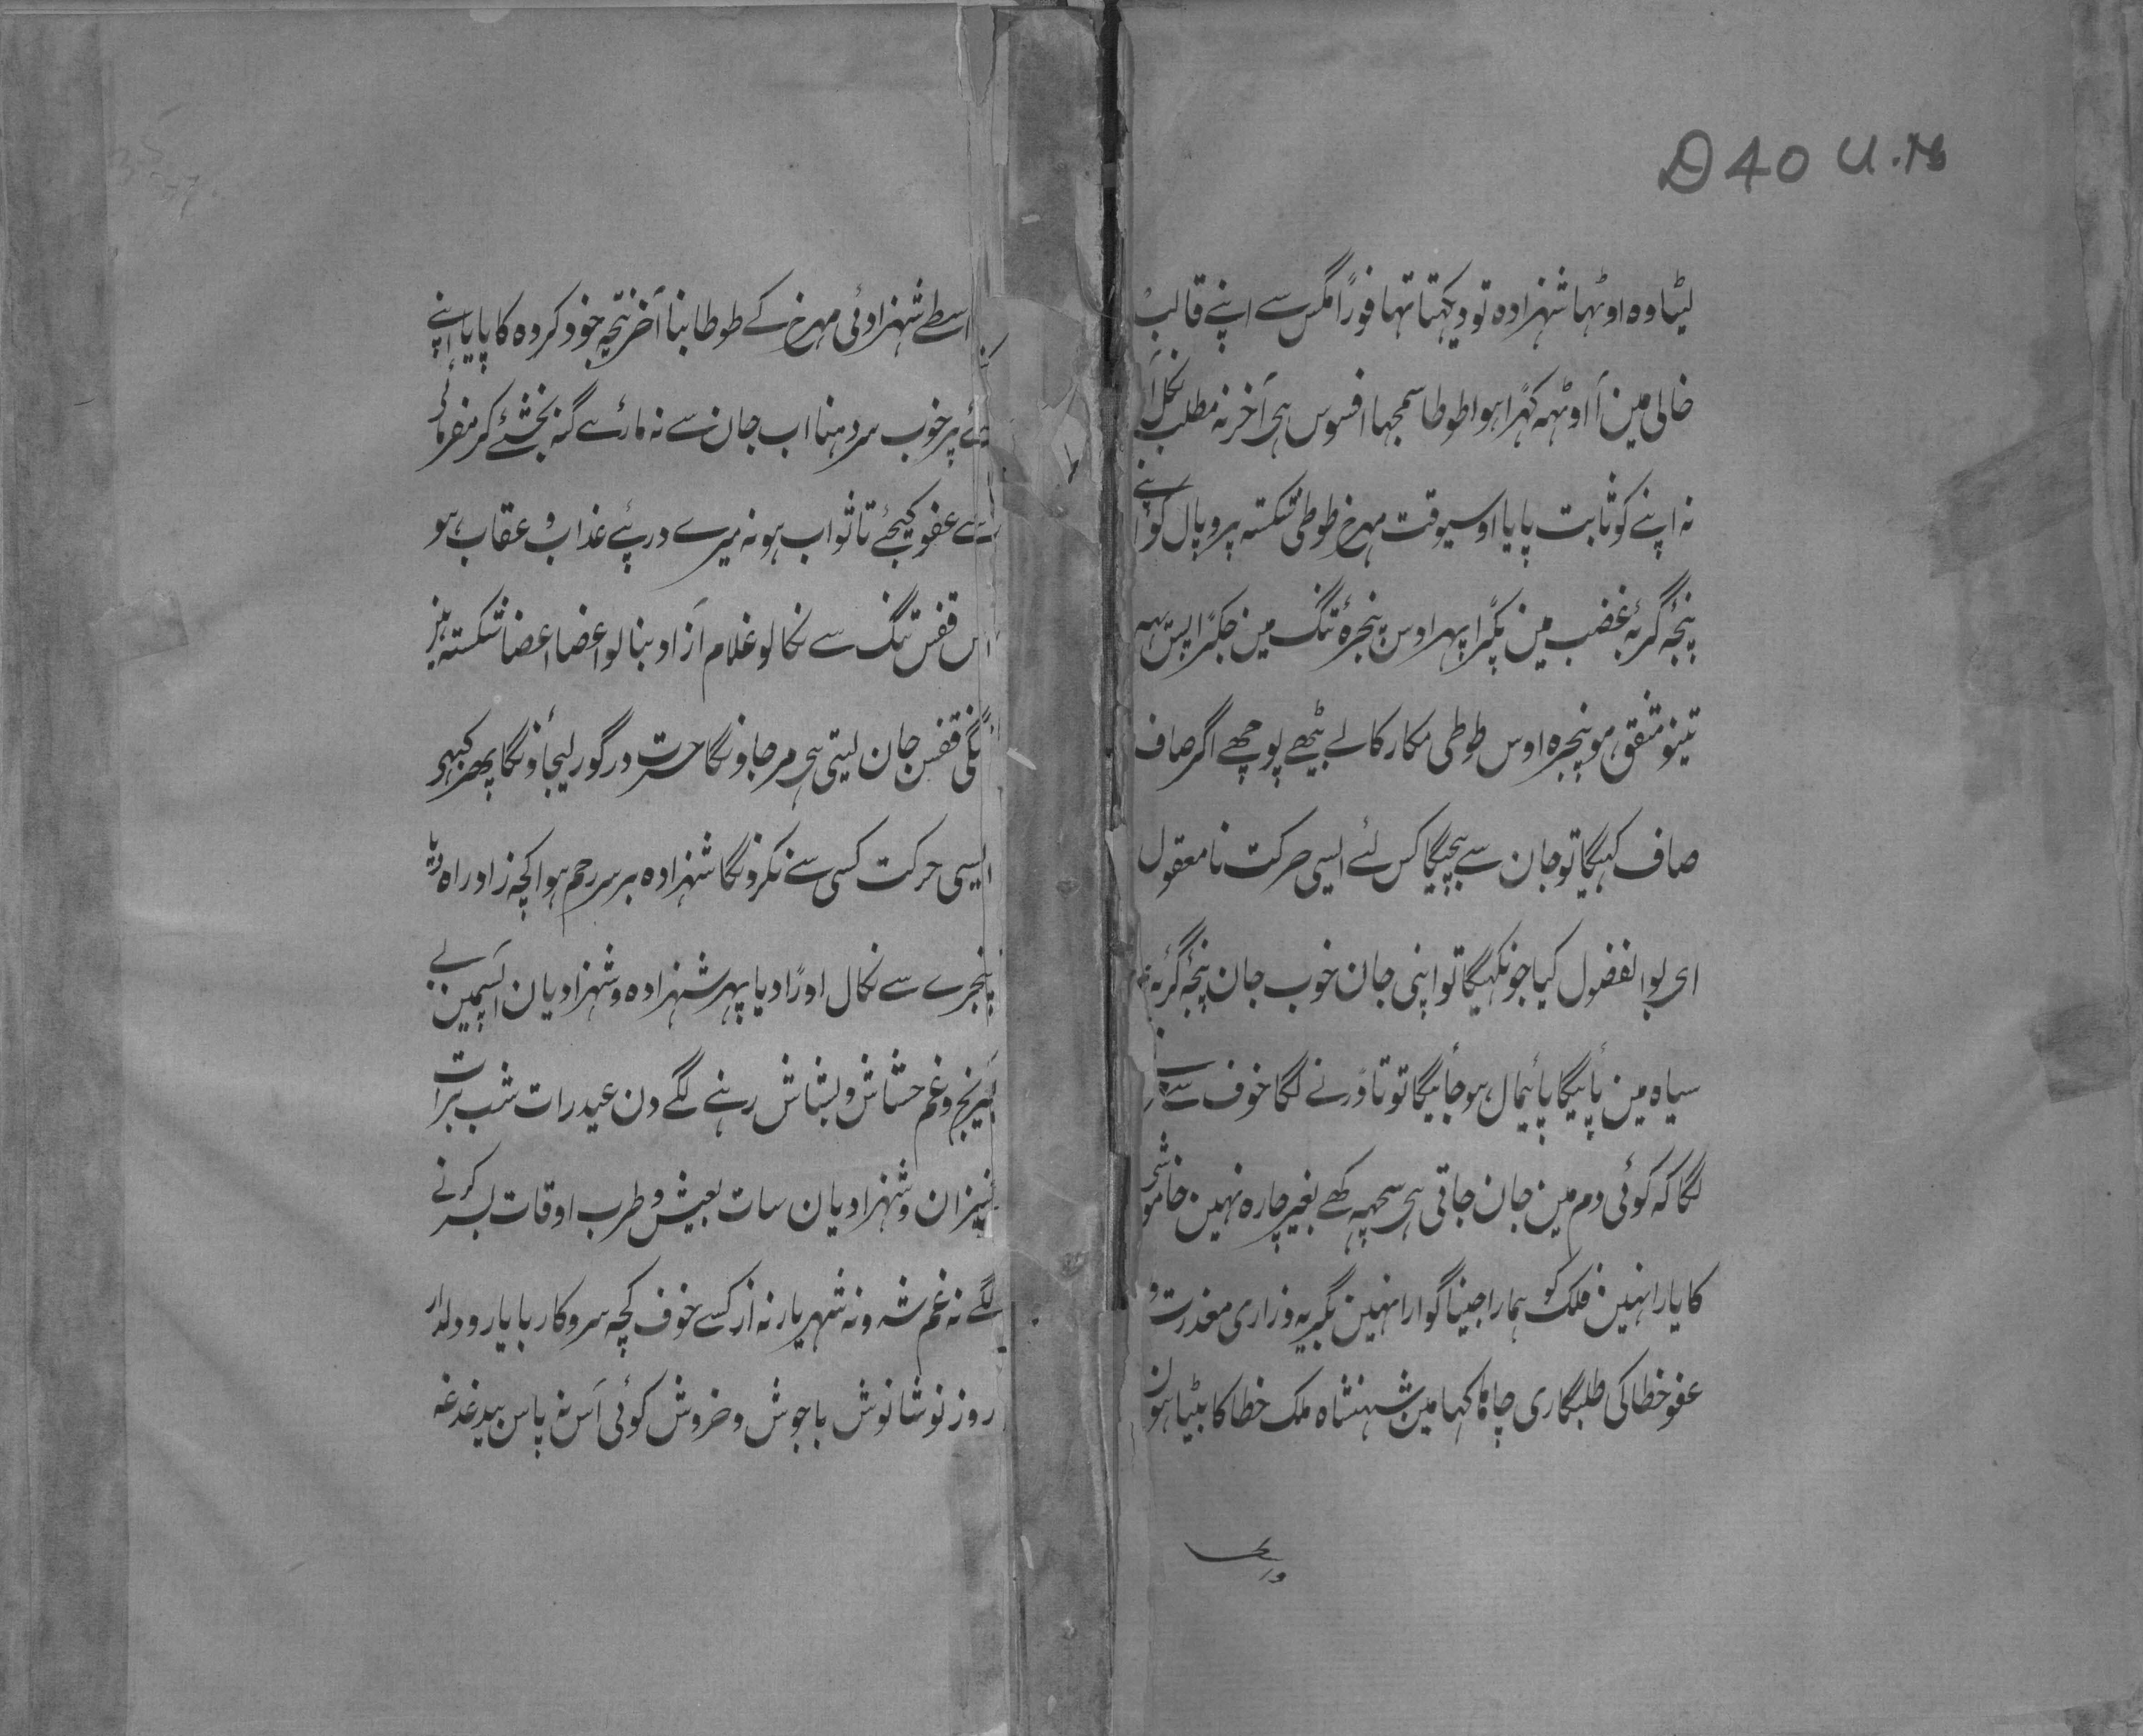 D 40 U.M
لیٹا وہ اوٹہا شہزادہ تو دیکہتا تہا فوراً مگس سے اپنے قالب
خالی مین آ اوٹہہ کہڑا ہوا طوطا سمجہا افسوس ہی آخر نہ مطلب نکل آ
نہ اپنے کو ثابت پایا اوسیوقت مہرخ طوطی شکستہ پر و بال کو اپنے
پنجۂ گربۂ غضب مین پکڑا پہر اوس پنجرۂ تنگ مین جکڑا پس یہہ
تینو متفق ہو پنجرہ اوس طوطی مکار کا لے بیٹھے پوچھے اگر صاف
صاف کہیگا تو جان سے بچیگا کس لئے ایسی حرکت نامعقول
ای بوالفضول کیا جو نکہیگا تو اپنی جان خوب جان پنجۂ گربۂ
سیاہ مین پائیگا پائیمال ہو جائیگا توتا ڈرنے لگا خوف سے
لگا کہ کوئی دم مین جان جاتی ہی سچہہ کہے بغیر چارہ نہین خاموشی
کا یارا نہین فلک کو ہمارا جینا گوارا نہین بگریہ و زاری معذرت و
عفو خطا کی طلبگاری چاہا کہا مین شہنشاہ ملک خطا کا بیٹا ہون
واسطے شہزادئی مہرخ کے طوطا بنا آخر نتیجہ خود کردہ کا پایا اپنے
کئے پر خوب سر دہنا اب جان سے نہ مارئے گنہ بخشئے کرم فرمائے
سے عفو کیجئے تا ثواب ہو نہ میرے درپئے عذاب و عقاب ہو
اس قفس تنگ سے نکالو غلام آزاد بنا لو اعضا اعضا شکستہ ہین
تنگی قفس جان لیتی ہی مر جاونگا حسرت در گور لیجاؤنگا پھر کبہو
ایسی حرکت کسی سے نکرونگا شہزادہ برسر رحم ہوا کچہ زاد راہ دیا
پنجرے سے نکال اوڑا دیا پہر شہزادہ و شہزادیان آپسمین بے
رنج و غم حشاش و بشاش رہنے لگے دن عید رات شب برات
کنیزان و شہزادیان سات بعیش و طرب اوقات بسر کرنے
لگے نہ غم شہ و نہ شہریار نہ از کسے خوف کچہ سروکار با یار و دلدار
روز نوشا نوش با جوش و خروش کوئی آس نہ پاس بیدغدغہ